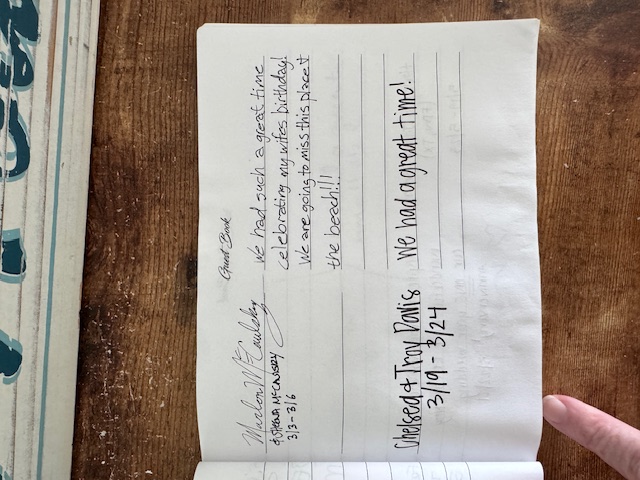 Guest Book
Marlon McCaulsky
& SHENA MCCAULSKY
3/3 - 3/6
We had such a great time
celebrating my wifes birthday!
We are going to miss this place &
the beach!!!
Chelsea + Troy Davis
3/19 - 3/24
We had a great time!